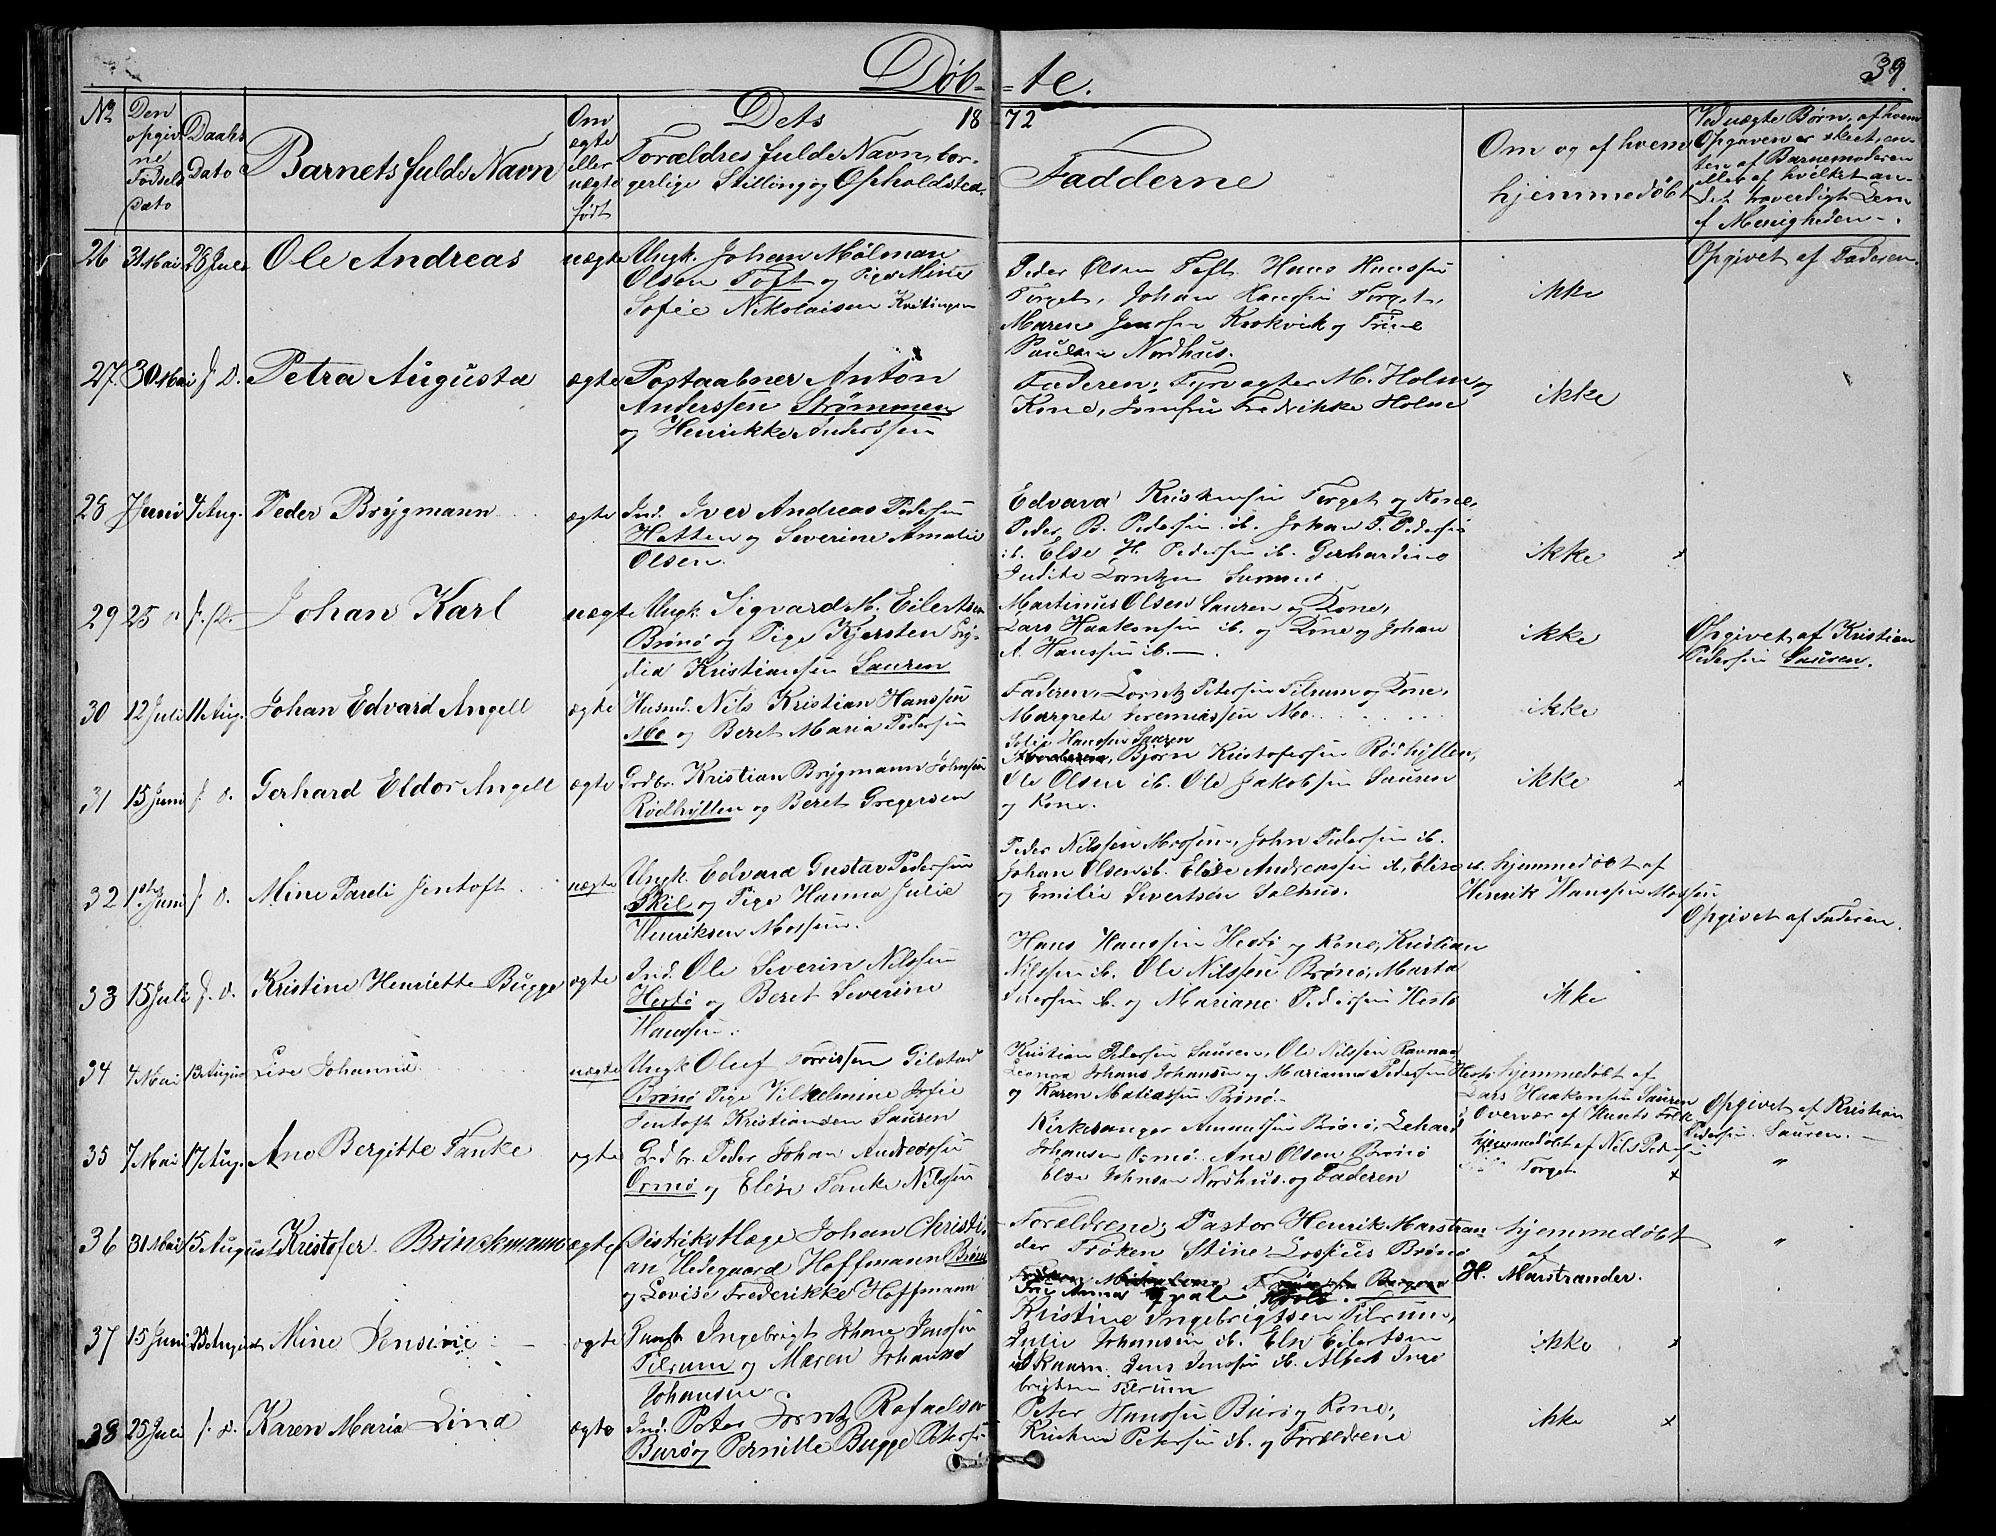 Døb-te.
39.
No
Den opgivne Fødsels Dato
Daabs Dato
Barnets fulde Navn
Om ægte eller uægte født
Dets
Forældres fulde Navn, borgerlige Stilling og Opholdsted.
1872
Fadderne
Om og af hvem hjemmedøbt
Ved uægte Børn, af hvem
Opgaven er skeet, enten af Barnemoderen
eller af hvilket andet troværdigt Lem
af Menigheden.
26 31 Mai 28 Juli Ole Andreas uægte Ungk. Johan Mølman
Olsen Toft og Pige Mine
Sofie Nikolaisen
Peder Olsen Toft. Hans Hanssen
Torget, Johan Hanssen Torget,
Maren Jensen Krokvik og Trine
Paulsen Nordhus.
ikke
Opgivet af Faderen.
27 30 Mai s. D. Petra Augusta ægte Postaabner Anton
Anderssen Strømmen
og Henrikke Anderssen
Faderen, Fyrvogter M. Holm og
Kone, Jomfru Fredrikke Holm
ikke
28 7 Juni 4 Aug. Peder Brygmann ægte Ind. Iver Andreas Pedersen
Hatten og Severine Amalie
Olsen.
Edvard Kristensen Torget og Kone,
Peder B. Pedersen ib. Johan P. Pedersen
ib. Else H. Pedersen ib. Gerhardine
Judite Lorntzen
ikke
29 25 s. D. Johan Karl uægte Ungk. Sigvard M. Eilertsen
Brønø og Pige Kjersten
Kristiansen Sauren
Martinus Olsen Sauren og Kone,
Lars Haakensen ib. og Kone og Johan
A. Hanssen ib.
ikke
Opgivet af Kristian
Pedersen Sauren.
30 12 Juli 11 Aug. Johan Edvard Angell ægte Husmd. Nils Kristian Hanssen
Mo og Beret Maria Pedersen
Faderen, Lorntz Petersen Tilrum og Kone,
Margrete Jeremiassen Mo.
Sofie Hanssen Sauren
ikke
31 15 Juni s. D. Gerhard Eldor Angell ægte Grdbr. Kristian Brygmann Johnsen
Rødhylten og Beret Gregersen
Bjørn Kristofersen Rødhylten,
Ole Olsen ib. Ole Jakobsen Sauren
og Kone.
ikke
32 1ste Juni s. D. Mine Pareli Jentoft uægte Ungk. Edvard Gustav Pedersen
Skil og Pige Hanna Julie
Henriksen Mossem.
Peder Nilssen Mossem, John Pedersen ib.
Johan Olsen ib. Elise Andreassen ib, Elise
og Emilie Sivertsen Salhus.
hjemmedøbt af
Henrik Hanssen Mossem
Opgivet af Faderen.
33 15 Juli s. D. Kristine Henriette Bugge ægte Ind. Ole Severin Nilssen
Hestø og Beret Severine
Hanssen.
Hans Hanssen Hestø og Kone, Kristian
Nilssen ib. Ole Nilssen Brønø, Marta
ib. og Mariane Pedersen Hestø
ikke
34 4 Mai 13 August Lise Johanna uægte Ungk Oluf Torrissen
Brønø Pige Vilhelmine Sofie
Jentoft Kristiansen Sauren
Kristian Pedersen Sauren, Ole Nilssen Ravnaa
Leonora Johans Johansen og Marianna Pedersen Hestø
og Karen Matiassen Brønø.
hjemmedøbt af
Lars Haakensen Sauren
i Overvær af
Opgivet af Kristian
Pedersen Sauren.
35 7 Mai 17 Aug. Ane Bergitte Tanke ægte Grdbr. Peder Johan Andreassen
Ormø og Elise Tanke Nilssen
Kirkesanger Amundsen Brønø,
Johansen Ormø. Ane Olsen Brønø
Else Johnsen Nordhus. og Faderen
hjemmedøbt af Nils Pedersen
Torget
"
36 31 Mai 15 August Kristofer Brinckmann ægte Distriktslæge Johan Christian
Hedegaard Hoffmann Brønø
og Lovise Frederikke Hoffmann
Forældrene, Pastor Henrik Marstrander
Frøken Stine Brønø
hjemmedøbt
af
H. Marstrander.
"
37 15 Juni Mine Pensine ægte Ingebrigt Johan Jenssen
Tilrum og Maren Johanna
Johansen
Kristine Ingebrigtsen Tilrum,
Julie Johansen ib. Else Eilertsen
Jens Jenssen ib. Albert Inge
brigtsen Tilrum
ikke
38 25 Juli s. D. Karen Maria Lind ægte Ind. Peter Lorntz Rafaelsen
Burøy Pernille Bugge Petersen
Peter Hanssen Burøy Kone,
Petersen ib. og Forældrene
ikke